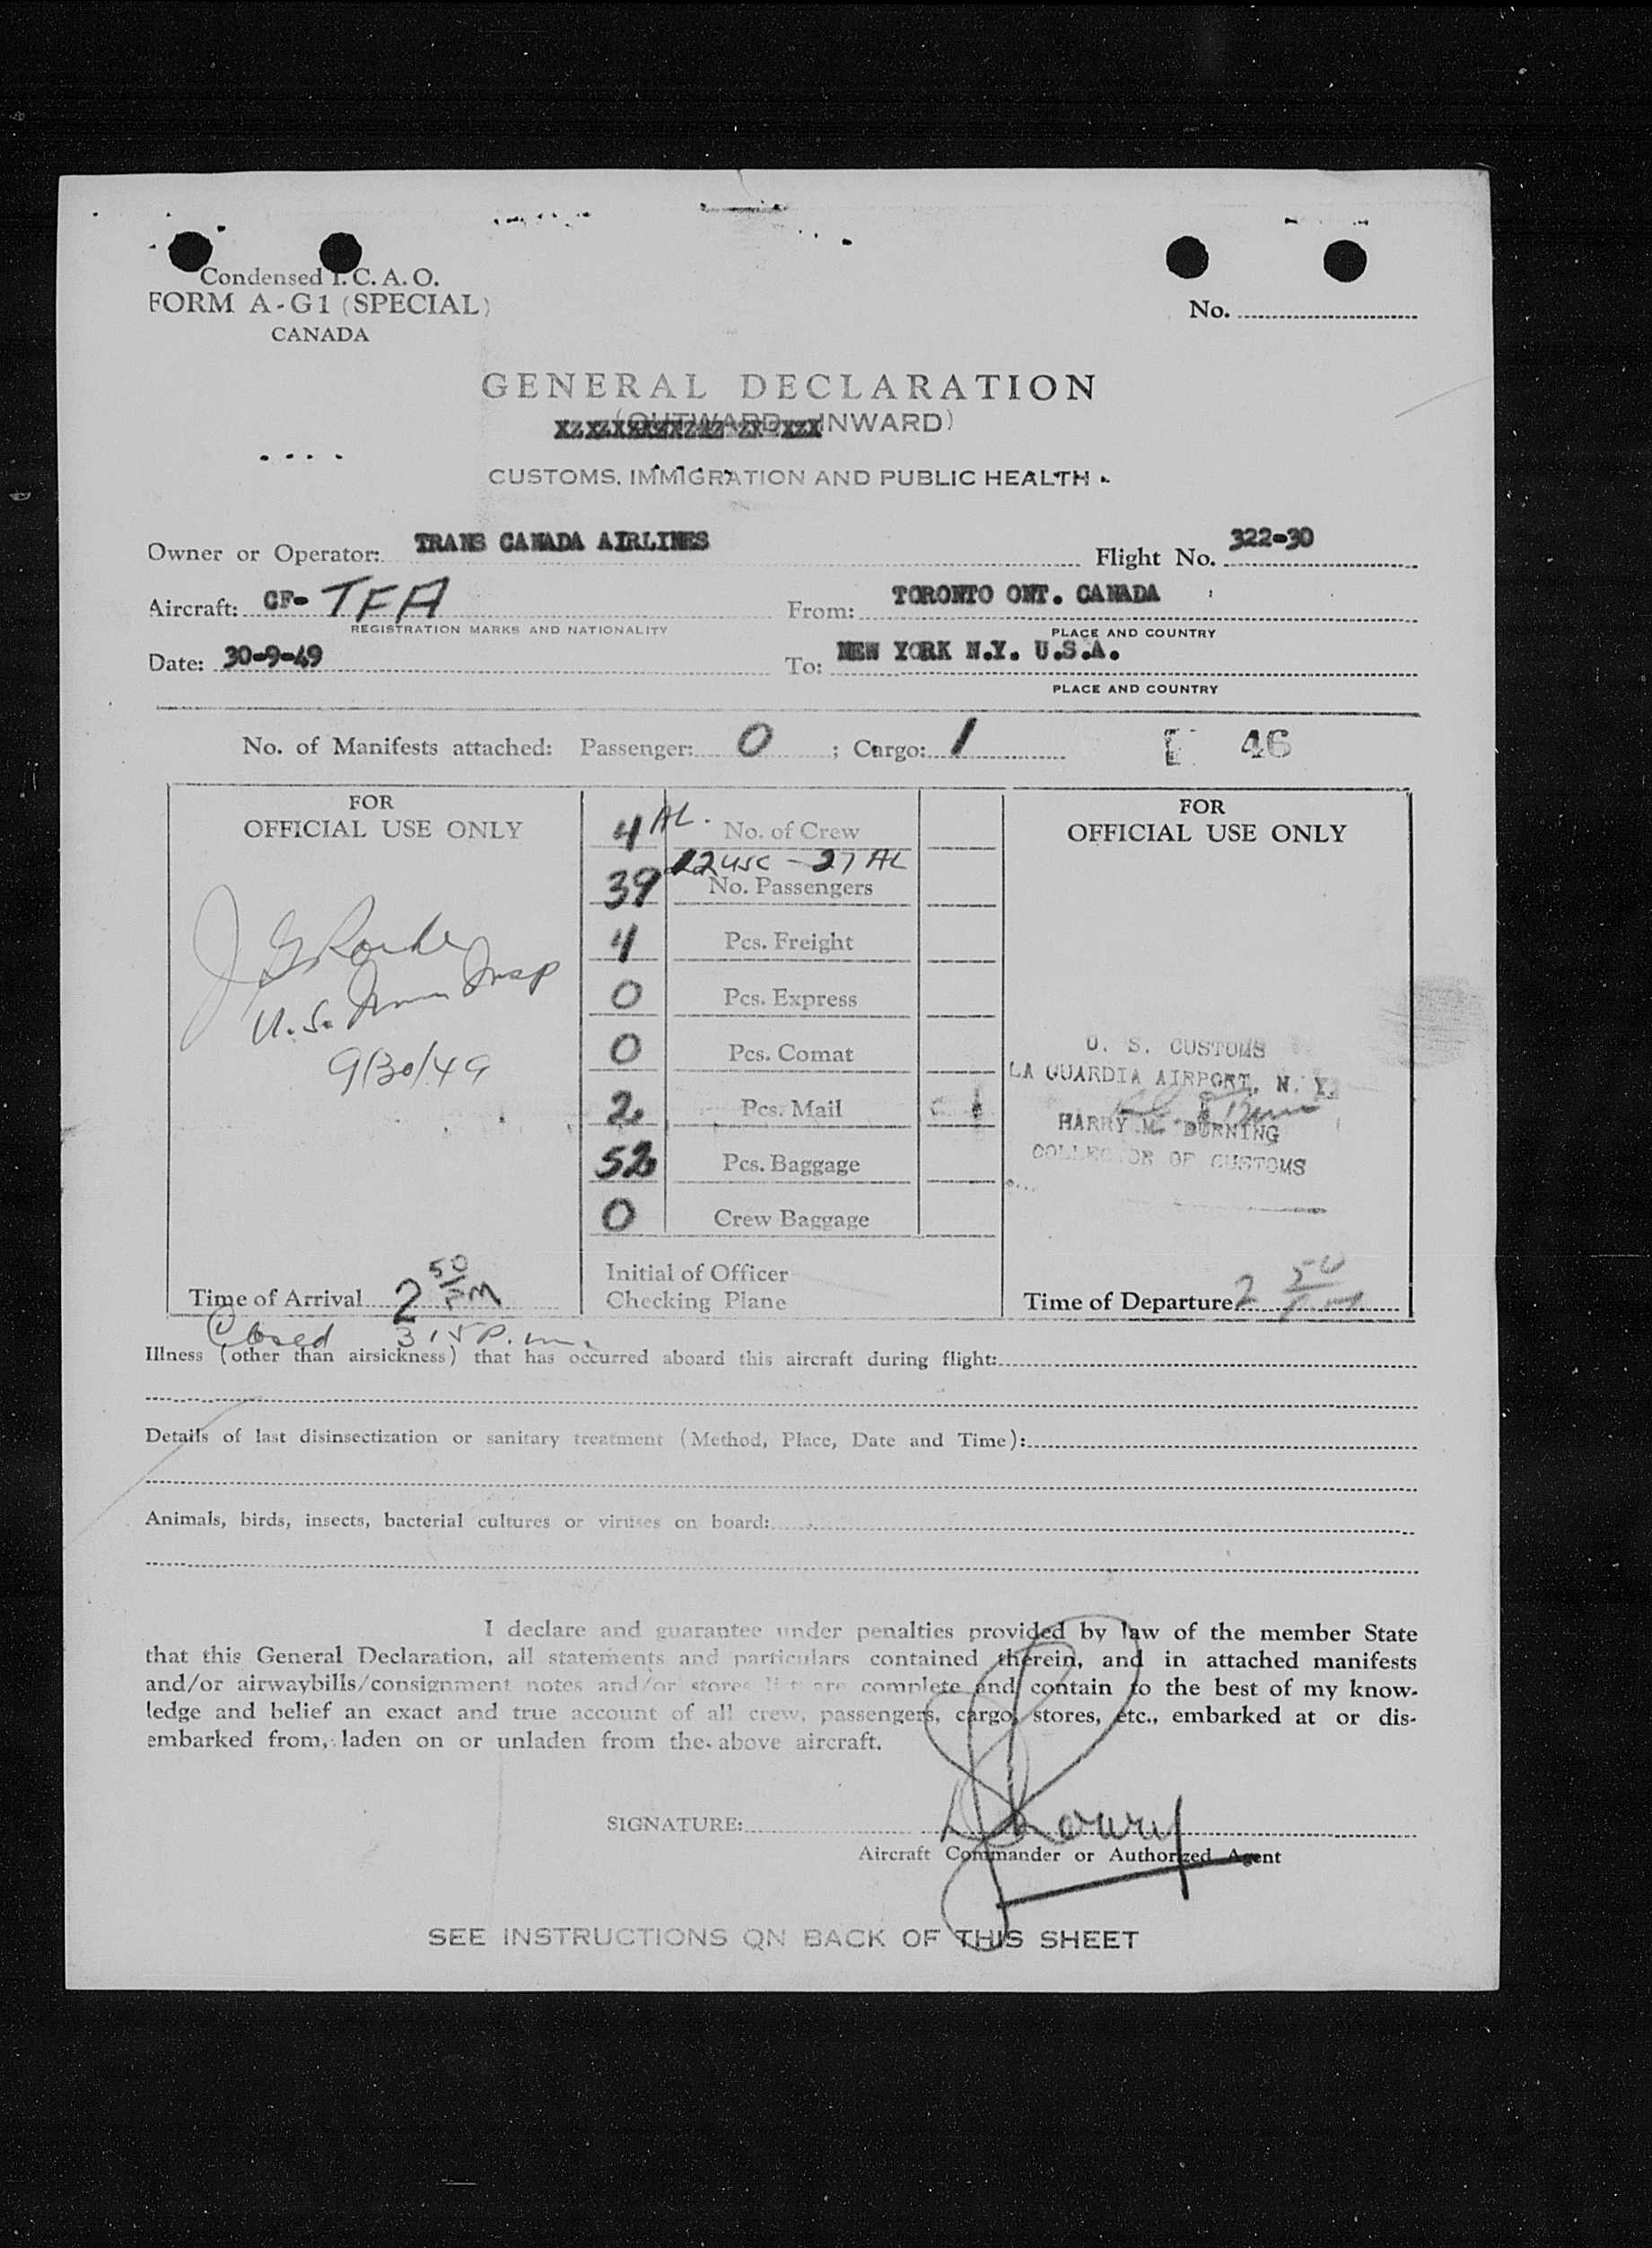 Condensed I. C. A. O.
FORM A-G1 (SPECIAL)
CANADA
No.
GENERAL DECLARATION
(OUTWARD INWARD)
CUSTOMS, IMMIGRATION AND PUBLIC HEALTH
Owner or Operator: TRANS CANADA AIRLINES Flight No. 322-30
Aircraft: CF- TFA From: TORONTO ONT. CANADA
REGISTRATION MARKS AND NATIONALITY PLACE AND COUNTRY
Date: 30-9-49 To: NEW YORK N.Y. U.S.A.
PLACE AND COUNTRY
No. of Manifests attached: Passenger: 0 ; Cargo: 1 46
FOR
OFFICIAL USE ONLY
U.S. Imm Insp
9/30/49
Time of Arrival 2 50 PM
4 AL. No. of Crew
12 USC - 27 AL
39 No. Passengers
4 Pcs. Freight
0 Pcs. Express
0 Pcs. Comat
2 Pcs. Mail
52 Pcs. Baggage
0 Crew Baggage
Initial of Officer
Checking Plane
FOR
OFFICIAL USE ONLY
U. S. CUSTOMS
LA GUARDIA AIRPORT, N. Y.
HARRY M. DURNING
COLLECTOR OF CUSTOMS
Time of Departure 2 50
Closed 315 P.m.
Illness (other than airsickness) that has occurred aboard this aircraft during flight:
Details of last disinsectization or sanitary treatment (Method, Place, Date and Time):
Animals, birds, insects, bacterial cultures or viruses on board:
I declare and guarantee under penalties provided by law of the member State
that this General Declaration, all statements and particulars contained therein, and in attached manifests
and/or airwaybills/consignment notes and/or stores list are complete and contain to the best of my know-
ledge and belief an exact and true account of all crew, passengers, cargo, stores, etc., embarked at or dis-
embarked from, laden on or unladen from the above aircraft.
SIGNATURE:
Aircraft Commander or Authorized Agent
SEE INSTRUCTIONS ON BACK OF THIS SHEET